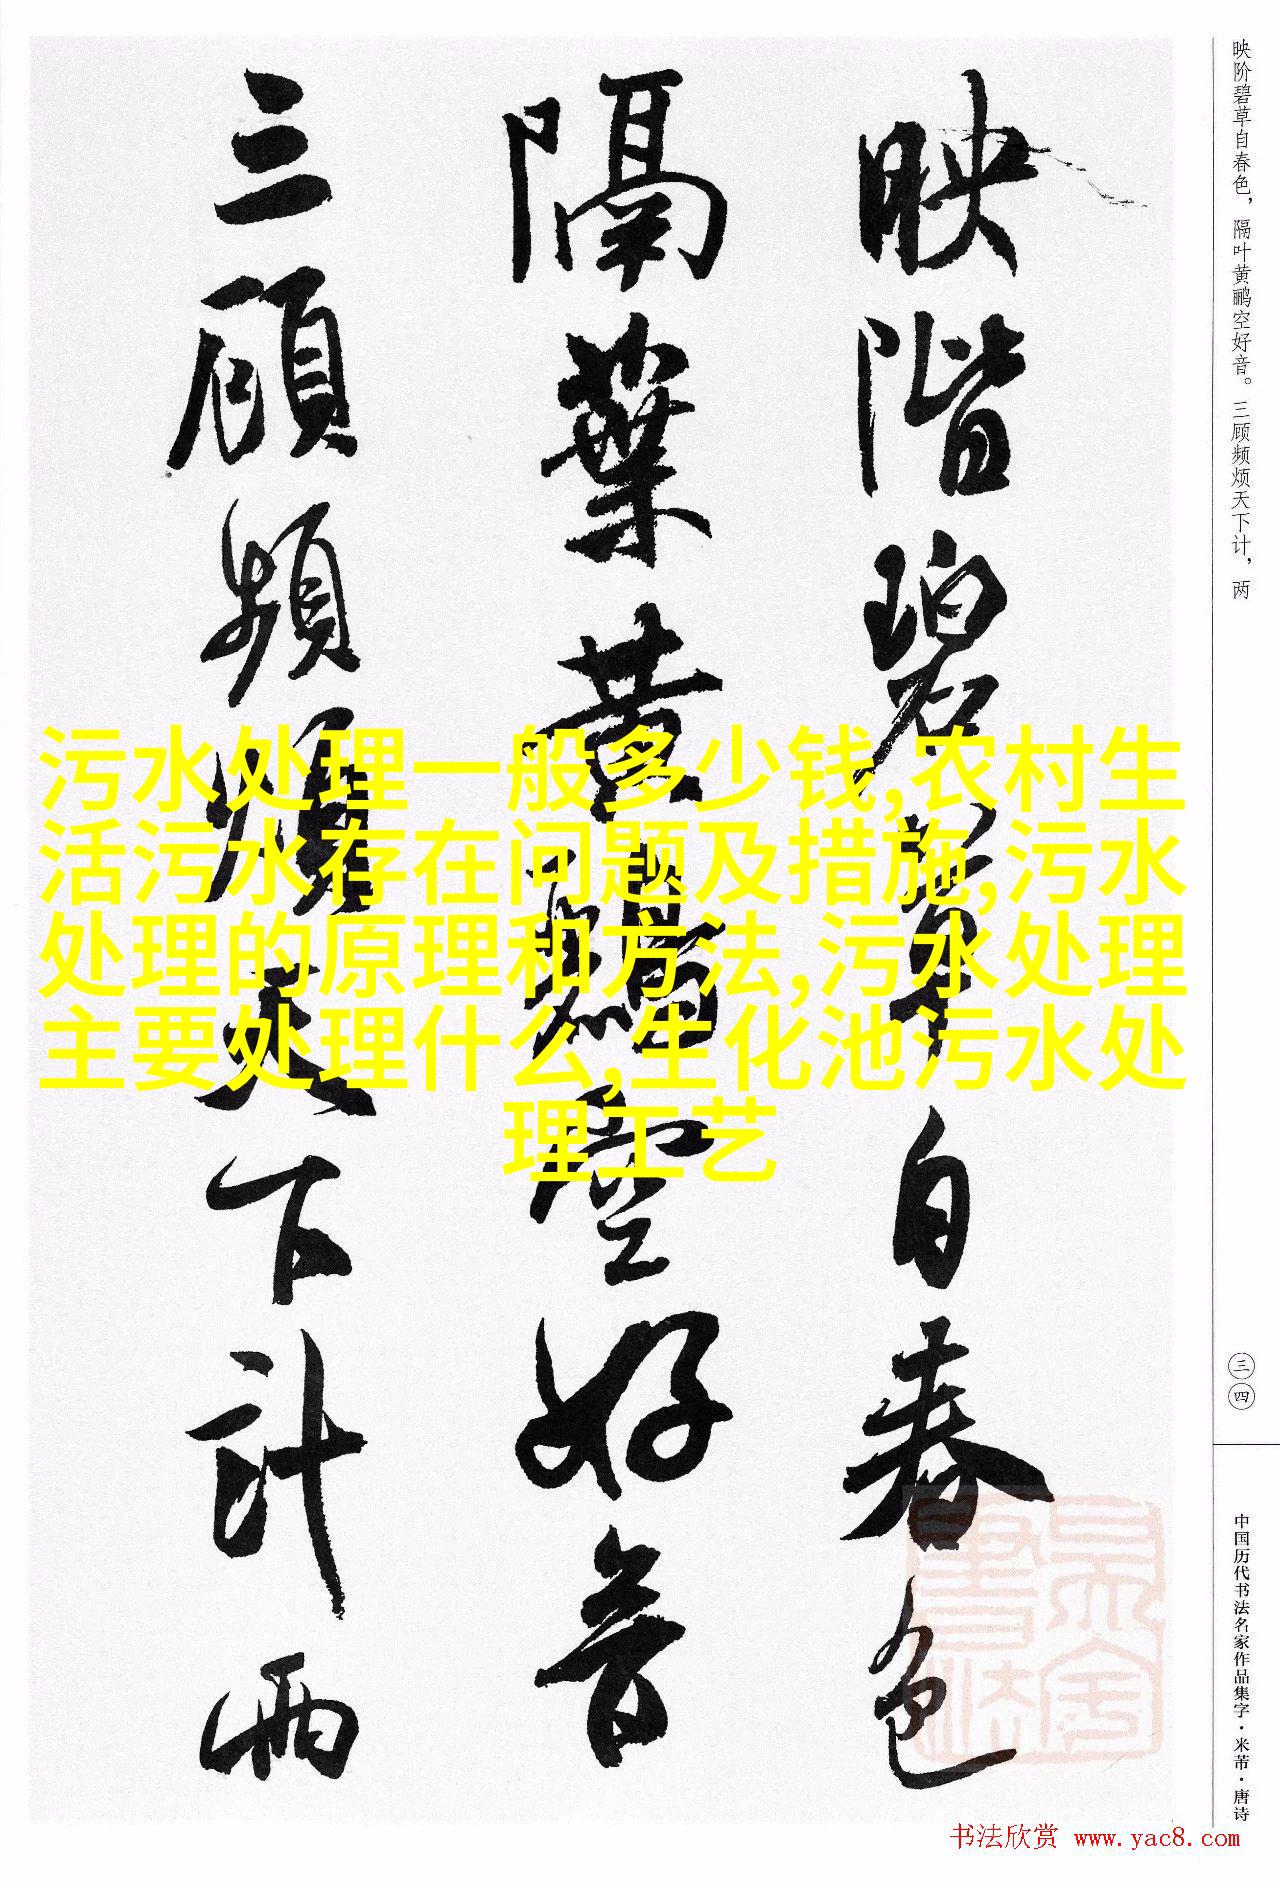 映阶碧草自春色，隔叶黄鹂空好音。三顾频烦天下计，两
映階碧草自春色
隔葉黄鸝空好音
三顧頻煩天下計兩
污水处理一般多少钱,农村生
活污水存在问题及措施,污水
处理的原理和方法,污水处理
主要处理什么,生化池污水处
理工艺
三四
中国历代书法名家作品集字·米芾·唐诗
书法欣赏 www.yac8.com